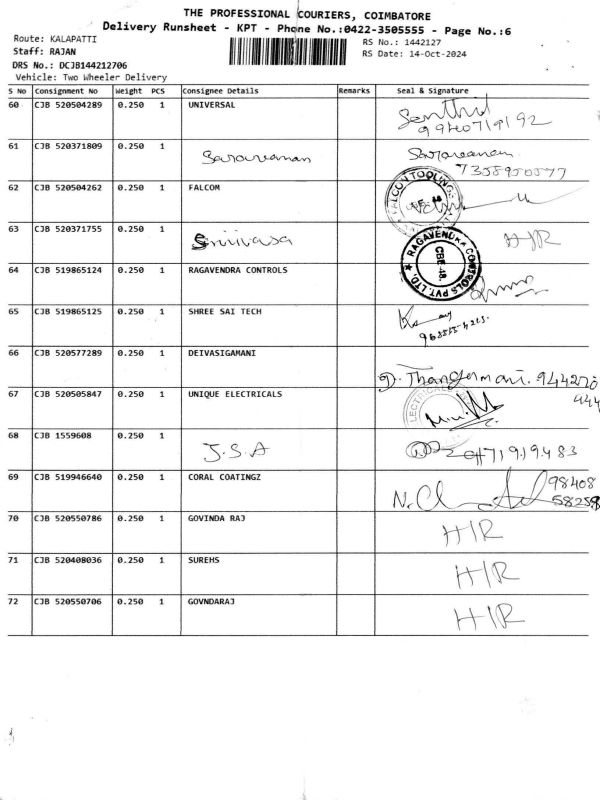 THE PROFESSIONAL COURIERS, COIMBATORE
Delivery Runsheet - KPT - Phone No.:0422-3505555 - Page No.:6
Route: KALAPATTI
RS No.: 1442127
Staff: RAJAN
RS Date: 14-Oct-2024
DRS No.: DCJB144212706
Vehicle: Two Wheeler Delivery
S No Consignment No Weight PCS Consignee Details Remarks Seal & Signature
60 CJB 520504289 0.250 1 UNIVERSAL
61 CJB 520371809 0.250 1 Saravanan Saravanan
7358950577
62 CJB 520504262 0.250 1 FALCOM
FALCON TOOLINGS
63 CJB 520371755 0.250 1 Srinivasa H/R
RAGAVENDRA CONTROLS PVT. LTD. CBE-48.
64 CJB 519865124 0.250 1 RAGAVENDRA CONTROLS
65 CJB 519865125 0.250 1 SHREE SAI TECH
66 CJB 520577289 0.250 1 DEIVASIGAMANI
67 CJB 520505847 0.250 1 UNIQUE ELECTRICALS
68 CJB 1559608 0.250 1 J.S.A
69 CJB 519946640 0.250 1 CORAL COATINGZ 98408
58258
70 CJB 520550786 0.250 1 GOVINDA RAJ H/R
71 CJB 520408036 0.250 1 SUREHS H/R
72 CJB 520550706 0.250 1 GOVNDARAJ H/R